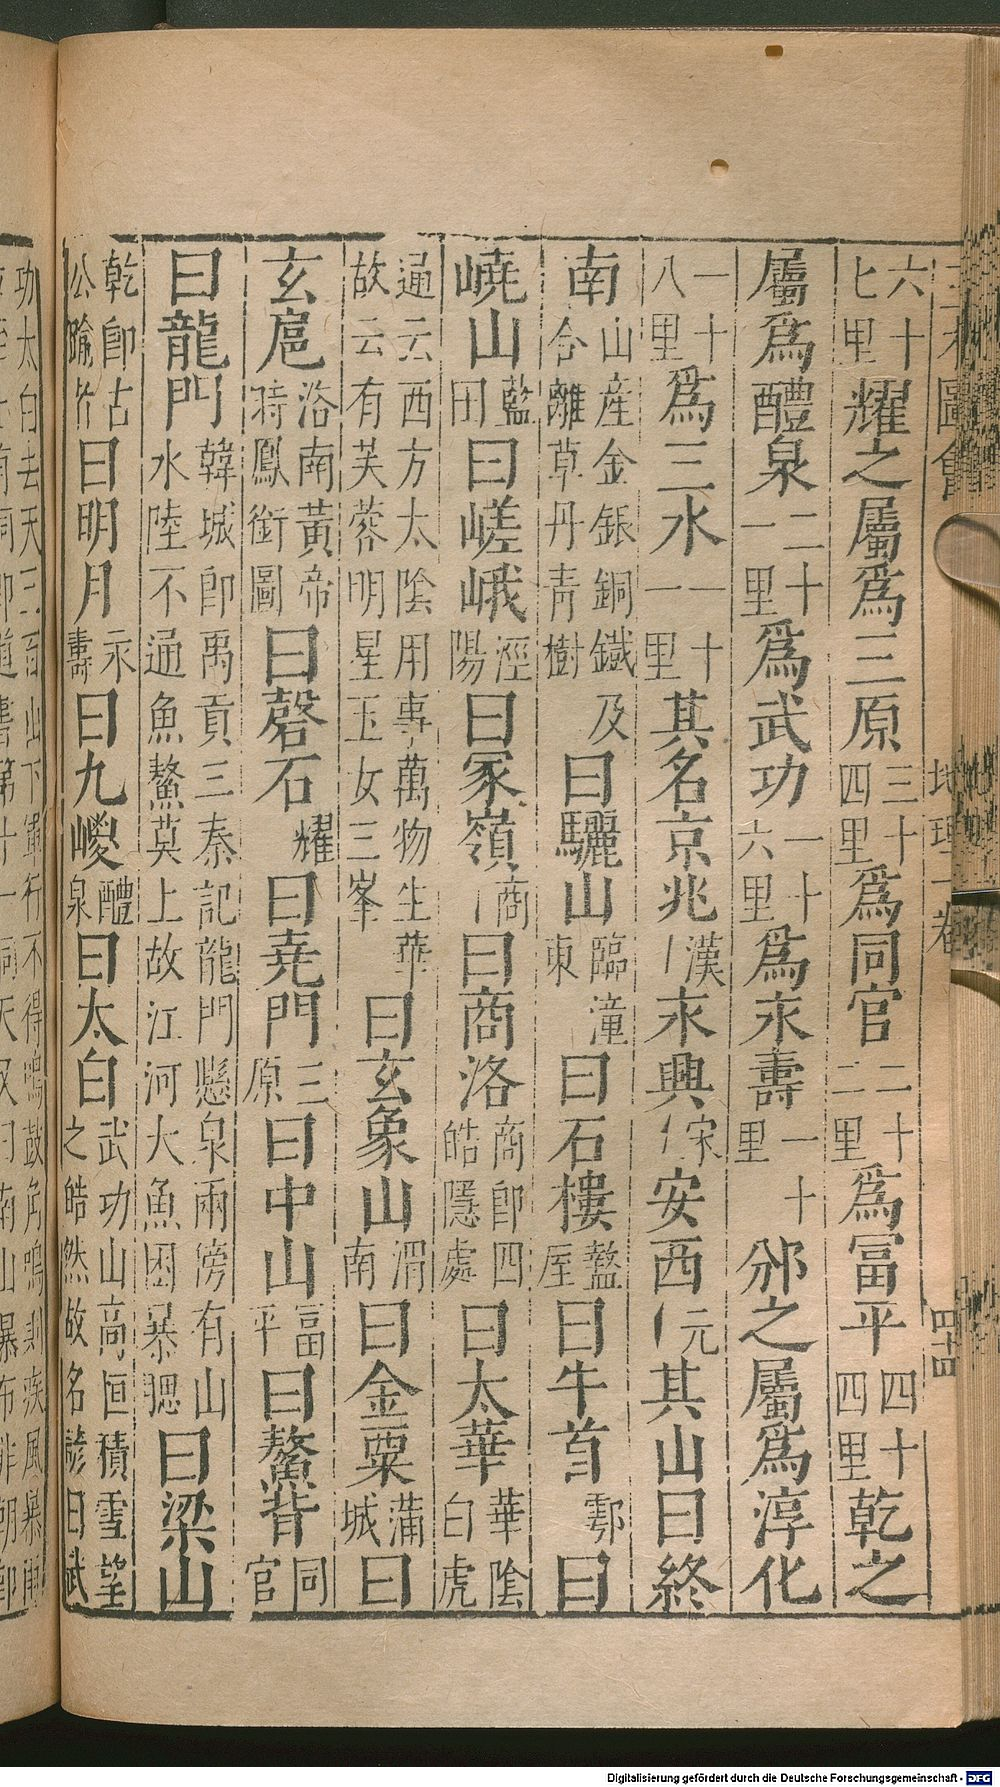 三才圖會 地理一卷 四十四
六十七里耀之屬爲三原三十四里爲同官二十二里爲冨平四十四里乾之
屬爲醴泉二十一里爲武功一十六里爲永壽一十里邠之屬爲淳化
一十八里爲三水一十一里其名京兆漢丨永興宋丨安西元丨其山曰終
南山產金銀銅鐵及合離草丹青樹曰驪山臨潼東曰石樓盩厔曰牛首鄠曰
嶢山藍田曰嵯峨涇陽曰冢嶺商丨曰商洛商卽四皓隱處曰太華華陰白虎
通云西方太陰用專萬物生華故云有芙蓉明星玉女三峯曰玄象山渭南曰金粟蒲城曰
玄扈洛南黃帝時鳳銜圖曰磬石耀曰堯門三原曰中山冨平曰鰲背同官
曰龍門韓城卽禹貢三秦記龍門懸泉兩傍有山水陸不通魚鰲莫上故江河大魚困暴腮曰梁山
乾卽古公踰於曰明月永壽曰九嵕醴泉曰太白武功山高恒積雪望之皓然故名諺曰武
功太白去天三百山下軍行不得鳴鼓角鳴則疾風暴雨
Digitalisierung gefördert durch die Deutsche Forschungsgemeinschaft - DFG